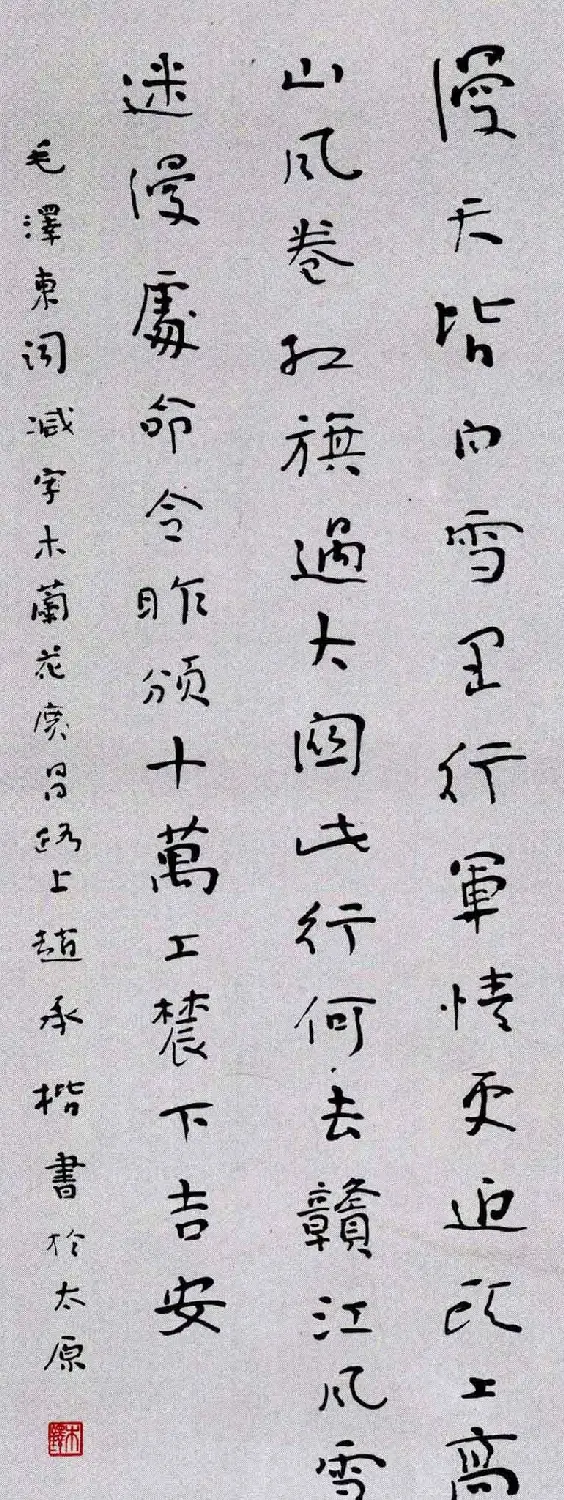 漫天皆白雪里行軍情更迫頭上高
山风卷红旗過大關此行何去贛江风雪
迷漫處命令昨頒十萬工辳下吉安
毛澤東词减字木蘭花廣昌路上趙承楷書於太原